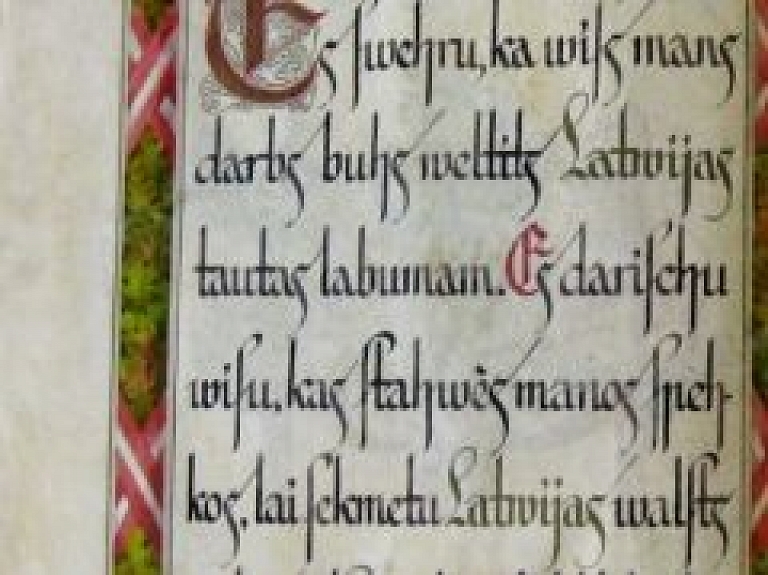 Es ſwehru, ka wiſs mans
darbs buhs weltits Latwijas
tautas labumam. Es dariſchu
wiſu, kas ſtahwēs manos ſpeh-
kos, lai ſekmetu Latwijas walſts